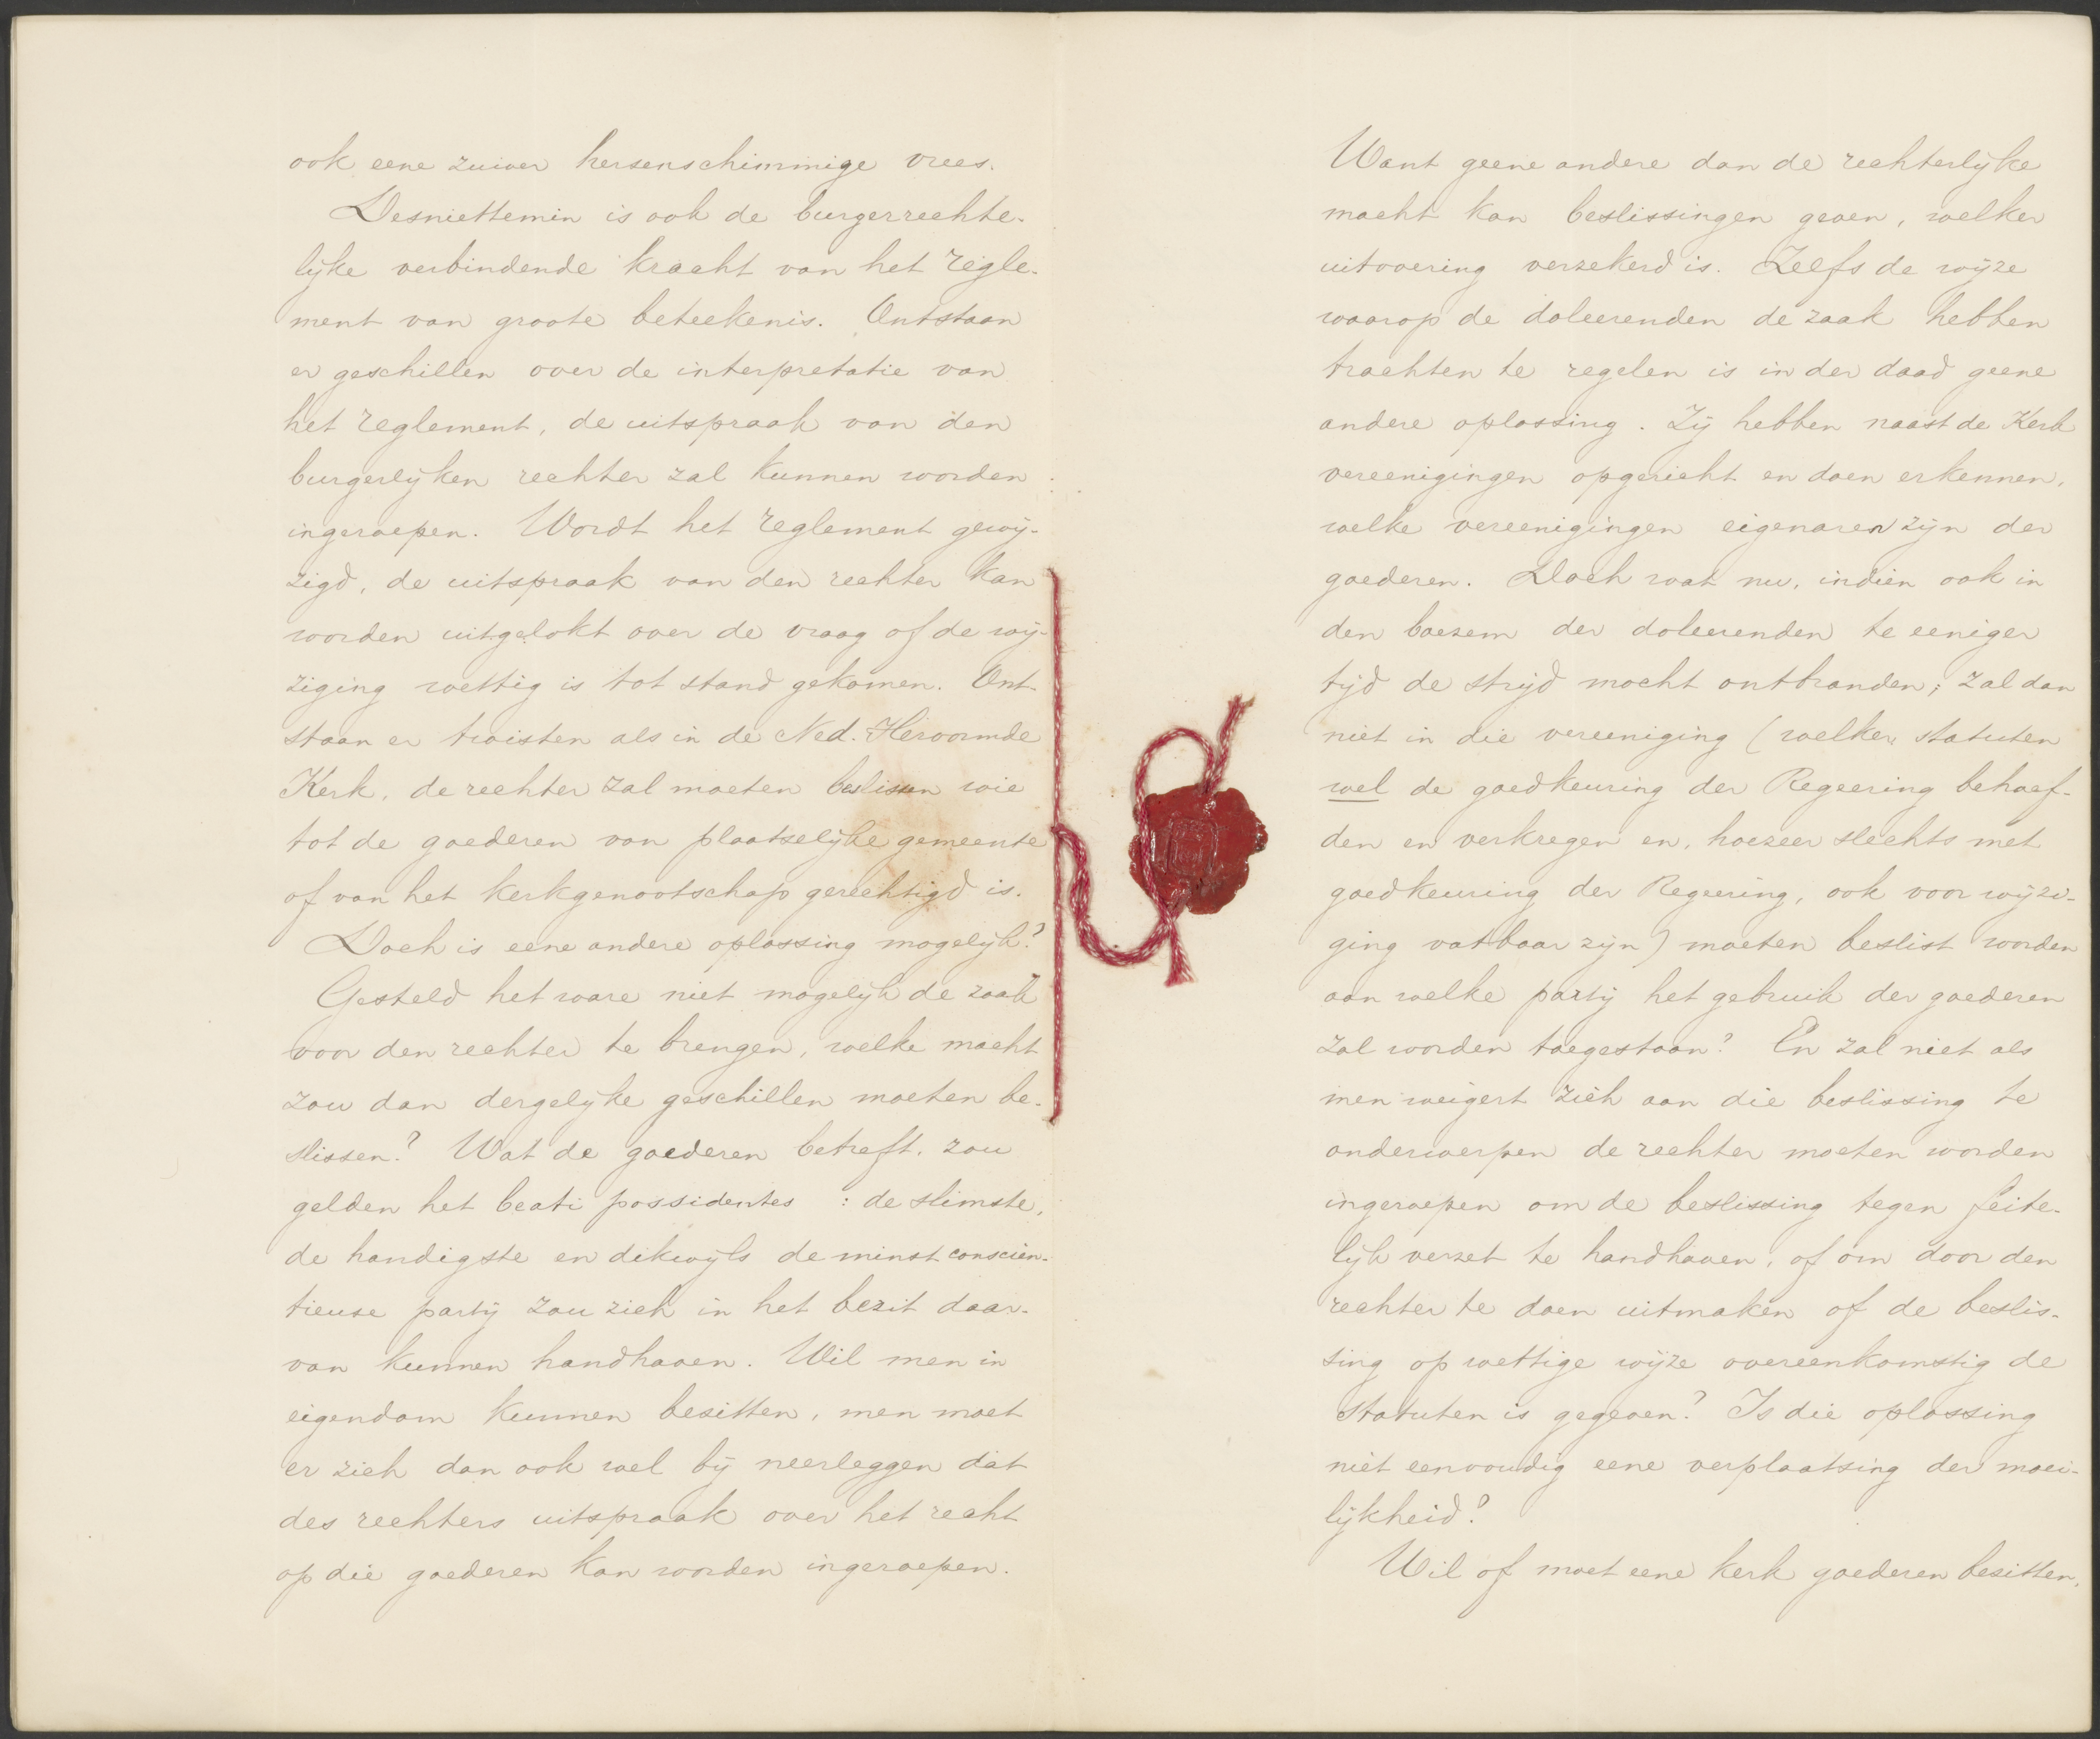 ook eene zuiver hersenschimmige vrees.
Desniettemin is ook de burgerrechte-
lijke verbindende kracht van het regle-
ment van groote beteekenis. Ontstaan
er geschillen over de interpretatie van
het reglement, de uitspraak van den
burgerlijken rechter zal kunnen worden
ingeroepen. Wordt het reglement gewij-
zigd, de uitspraak van den rechter kan
worden uitgelokt over de vraag of de wij-
ziging wettig is tot stand gekomen. Ont-
staan er twisten als in de Ned. Hervormde
Kerk, de rechter zal moeten beslissen wie
tot de goederen van plaatselijke gemeente
of van het kerkgenootschap gerechtigd is.
Doch is eene andere oplossing mogelijk?
Gesteld het ware niet mogelijk de zaak
voor den rechter te brengen, welke macht
zou dan dergelijke geschillen moeten be-
slissen? Wat de goederen betreft, zou
gelden het beati possidentes : de slimste,
de handigste en dikwijls de minst conscien-
tieuse partij zou zich in het bezit daar-
van kunnen handhaven. Wil men in
eigendom kunnen bezitten, men moet
er zich dan ook wel bij neerleggen dat
des rechters uitspraak over het recht
op die goederen kan worden ingeroepen.
Want geene andere dan de rechterlijke
macht kan beslissingen geven, welker
uitvoering verzekerd is. Zelfs de wijze
waarop de doleerenden de zaak hebben
trachten te regelen is in der daad geene
andere oplossing. Zij hebben naast de Kerk
vereenigingen opgericht en doen erkennen,
welke vereenigingen eigenaren zijn der
goederen. Doch wat nu, indien ook in
den boezem der doleerenden te eeniger
tijd de strijd mocht ontbranden; zal dan
niet in die vereeniging (welker statuten
wel de goedkeuring der Regeering behoef-
den en verkregen en, hoezeer slechts met
goedkeuring der Regeering, ook voor wijzi-
ging vatbaar zijn) moeten beslist worden
aan welke partij het gebruik der goederen
zal worden toegestaan? En zal niet als
men weigert zich aan die beslissing te
onderwerpen de rechter moeten worden
ingeroepen om de beslissing tegen feite-
lijk verzet te handhaven, of om door den
rechter te doen uitmaken of de beslis-
sing op wettige wijze overeenkomstig de
statuten is gegeven? Is die oplossing
niet eenvoudig eene verplaatsing der moei-
lijkheid?
Wil of moet eene kerk goederen bezitten,